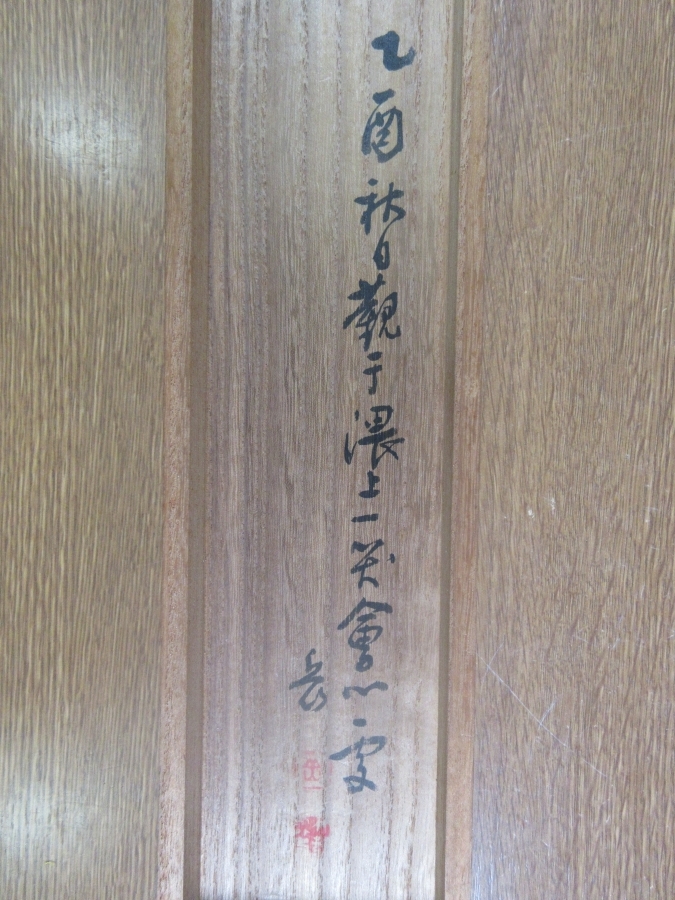 乙酉秋日觀于上一笑會心處
岳